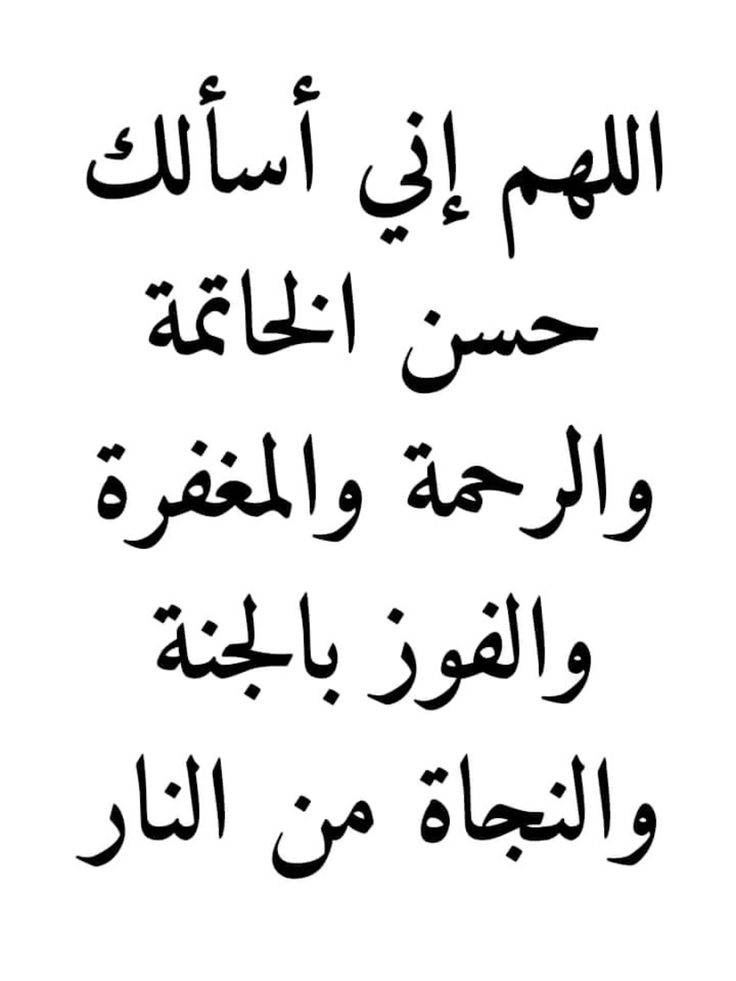 اللهم إني أسألك
حسن الخاتمة
والرحمة والمغفرة
والفوز بالجنة
والنجاة من النار